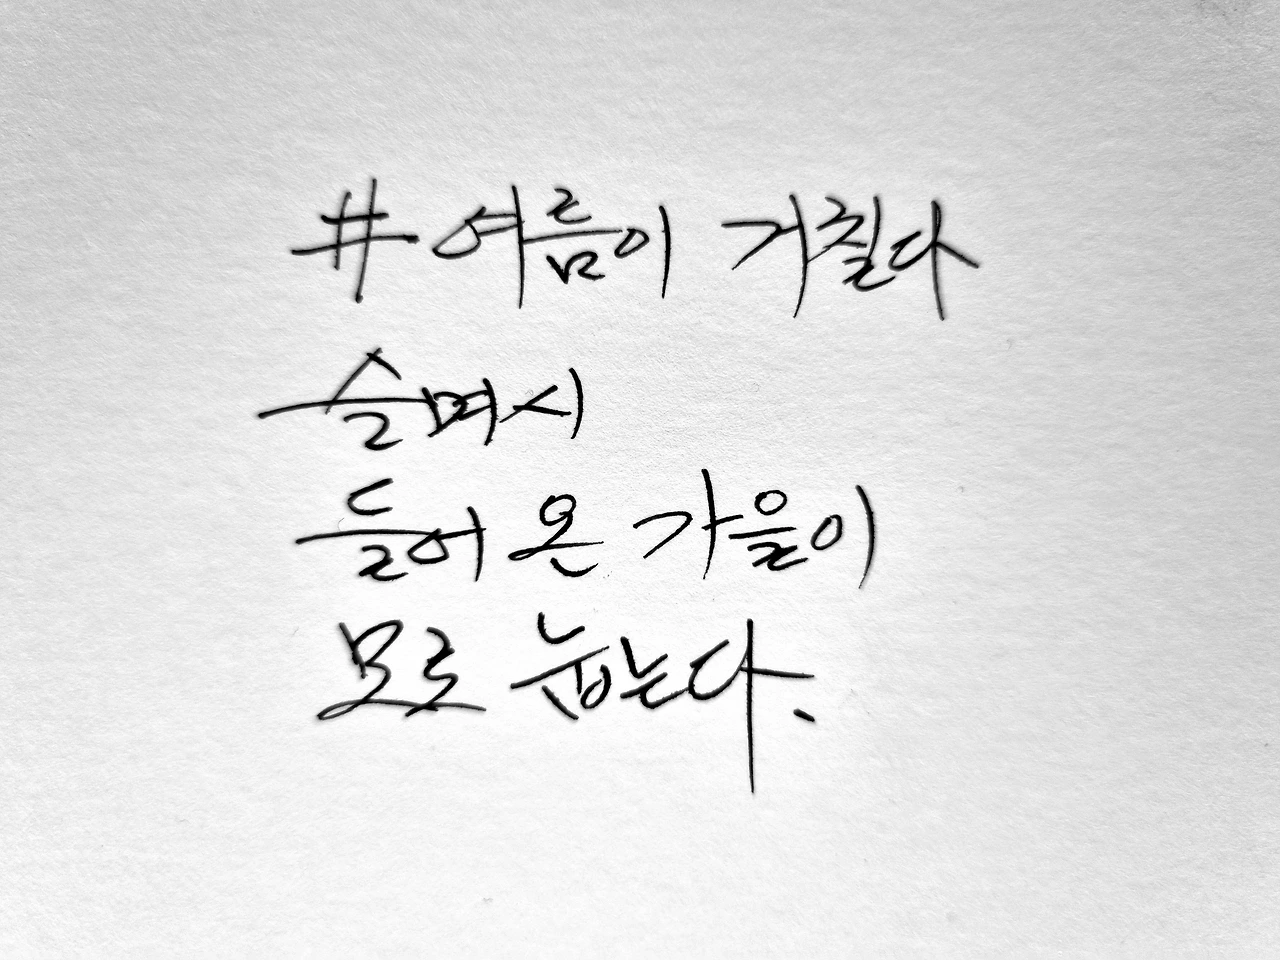 # 여름이 거칠다
슬며시
들어 온 가을이
모로 눕는다.